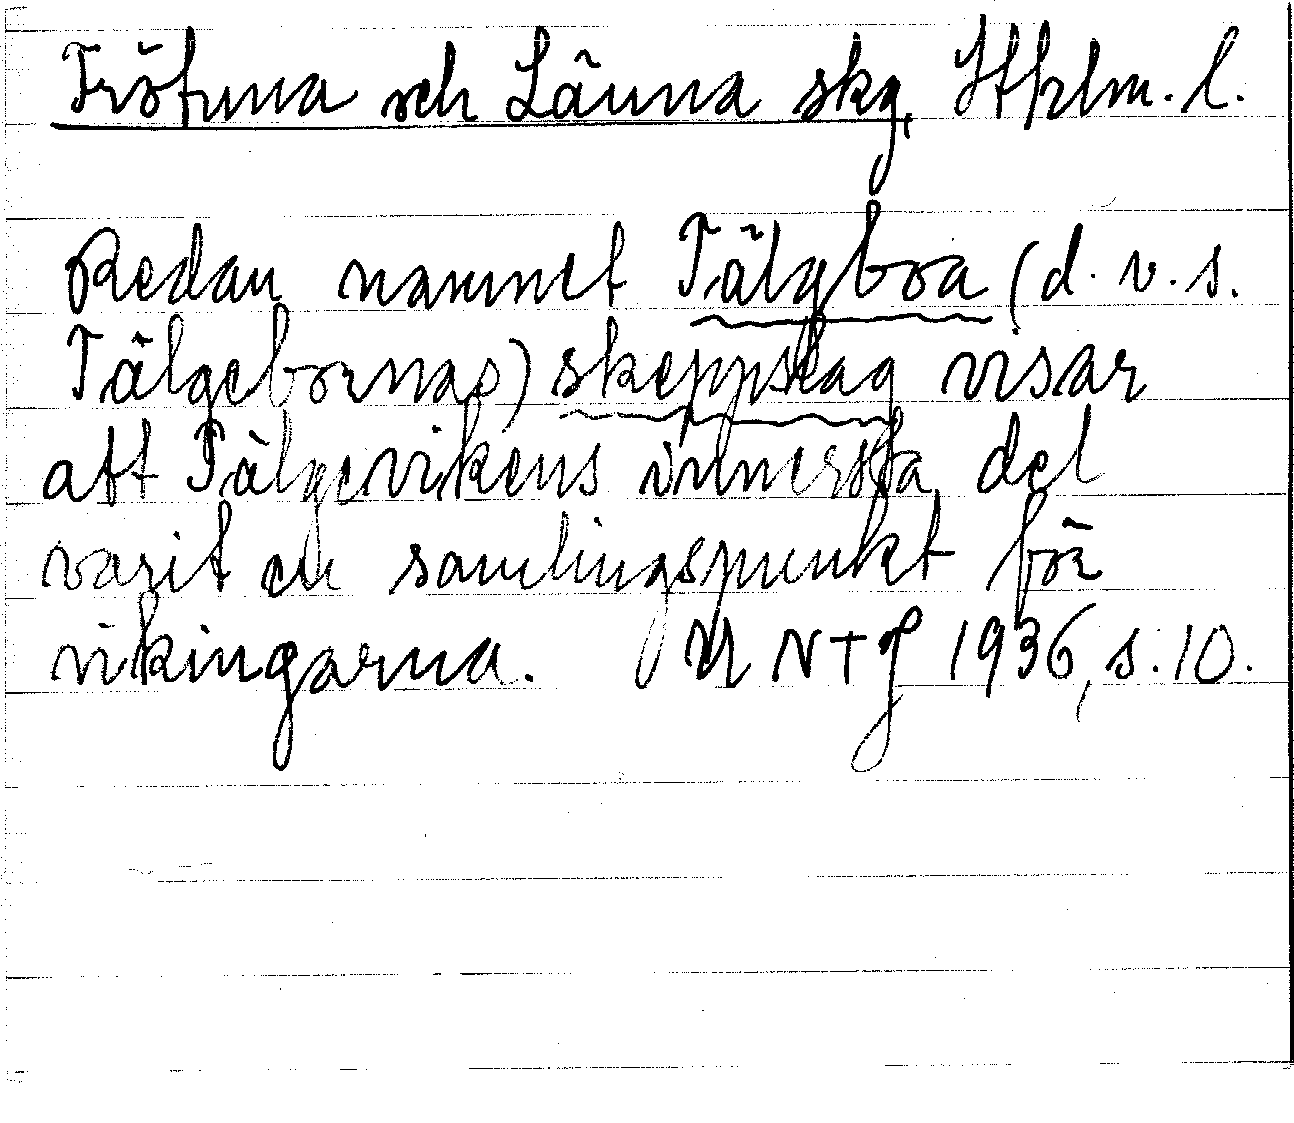 Frötuna och Länna skg, Sthlm. l.
Redan namnet Tälgboa (d. v. s.
Tälgebornas) skeppslag visar
att Tälgevikens innersta del
varit en samlingspunkt för
vikingarna. UNTJ 1936, s. 10.